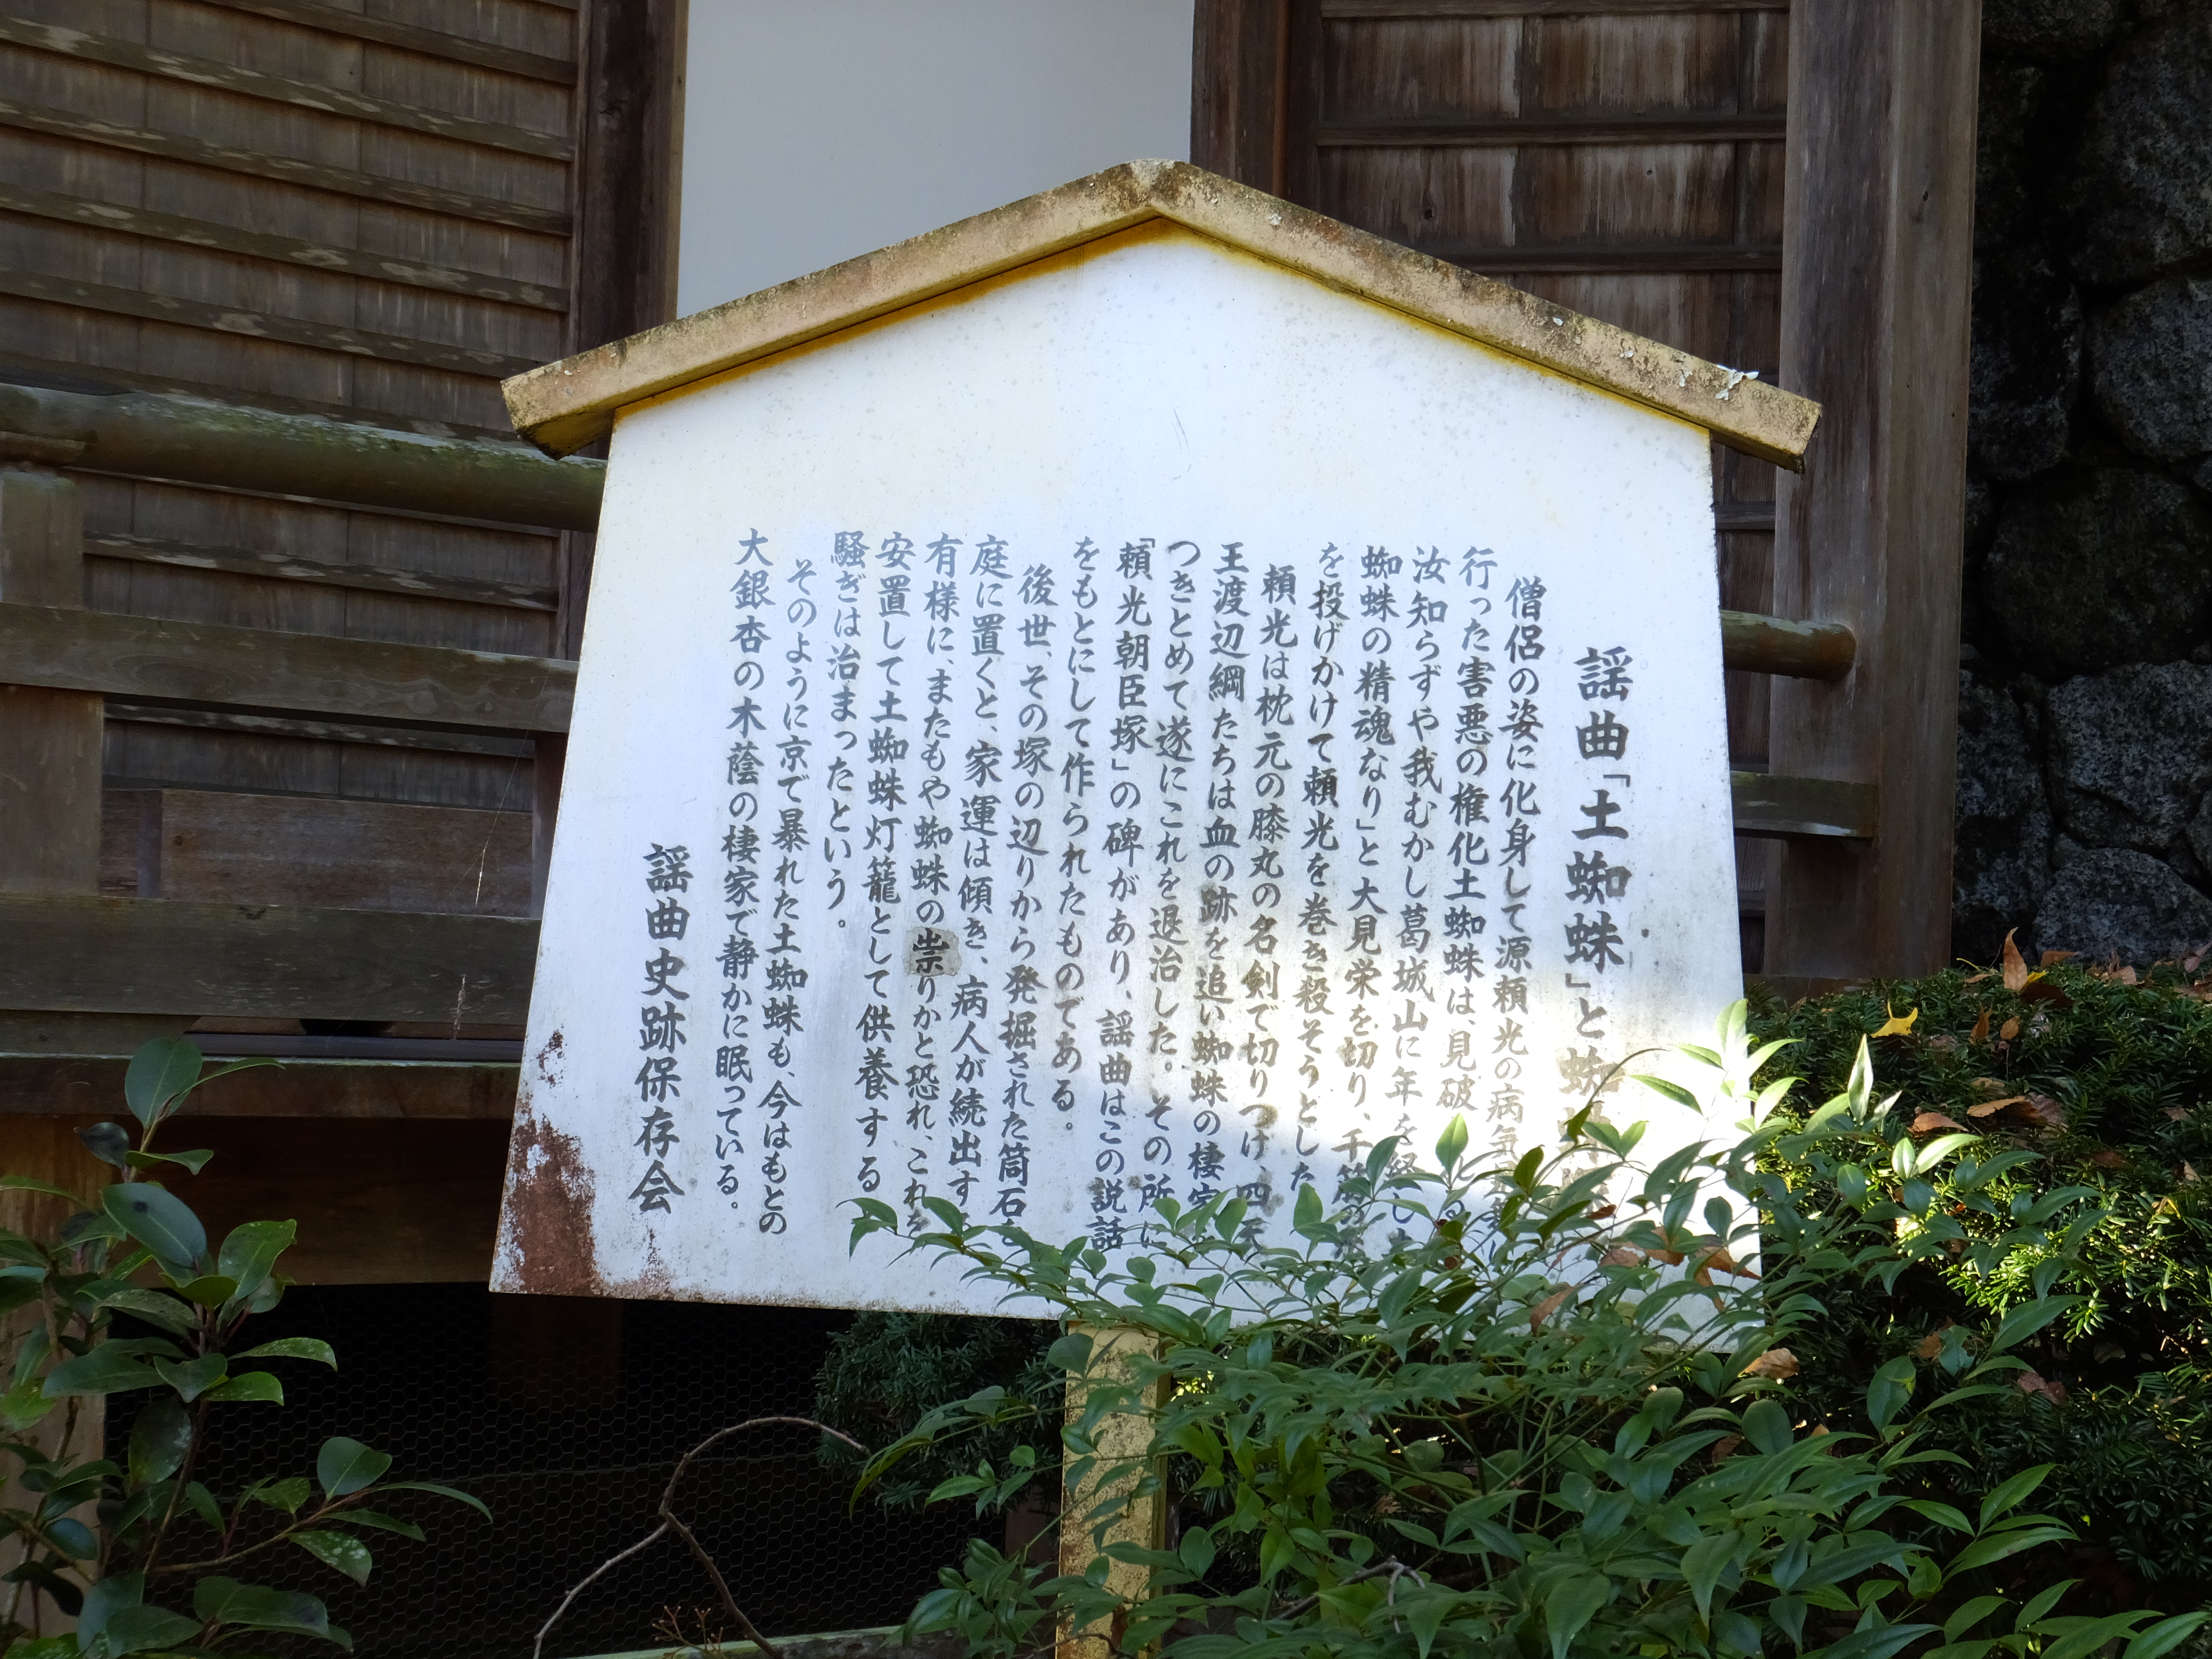 謡曲「土蜘蛛」と蜘
僧侶の姿に化身して源頼光の病気
行った害悪の権化土蜘蛛は、見破
汝知らずや我むかし葛城山に年を経し
蜘蛛の精魂なり」と大見栄を切り、千筋の
を投げかけて頼光を巻き殺そうとした
頼光は枕元の膝丸の名剣で切りつけ、四天
王渡辺綱たちは血の跡を追い蜘蛛の棲家
つきとめて遂にこれを退治した。その所に
「頼光朝臣塚」の碑があり、謡曲はこの説話
をもとにして作られたものである。
後世、その塚の辺りから発掘された筒石を
庭に置くと、家運は傾き、病人が続出す
有様に、またもや蜘蛛の祟りかと恐れ、これを
安置して土蜘蛛灯籠として供養する
騒ぎは治まったという。
そのように京で暴れた土蜘蛛も、今はもとの
大銀杏の木蔭の棲家で静かに眠っている。
謡曲史跡保存会